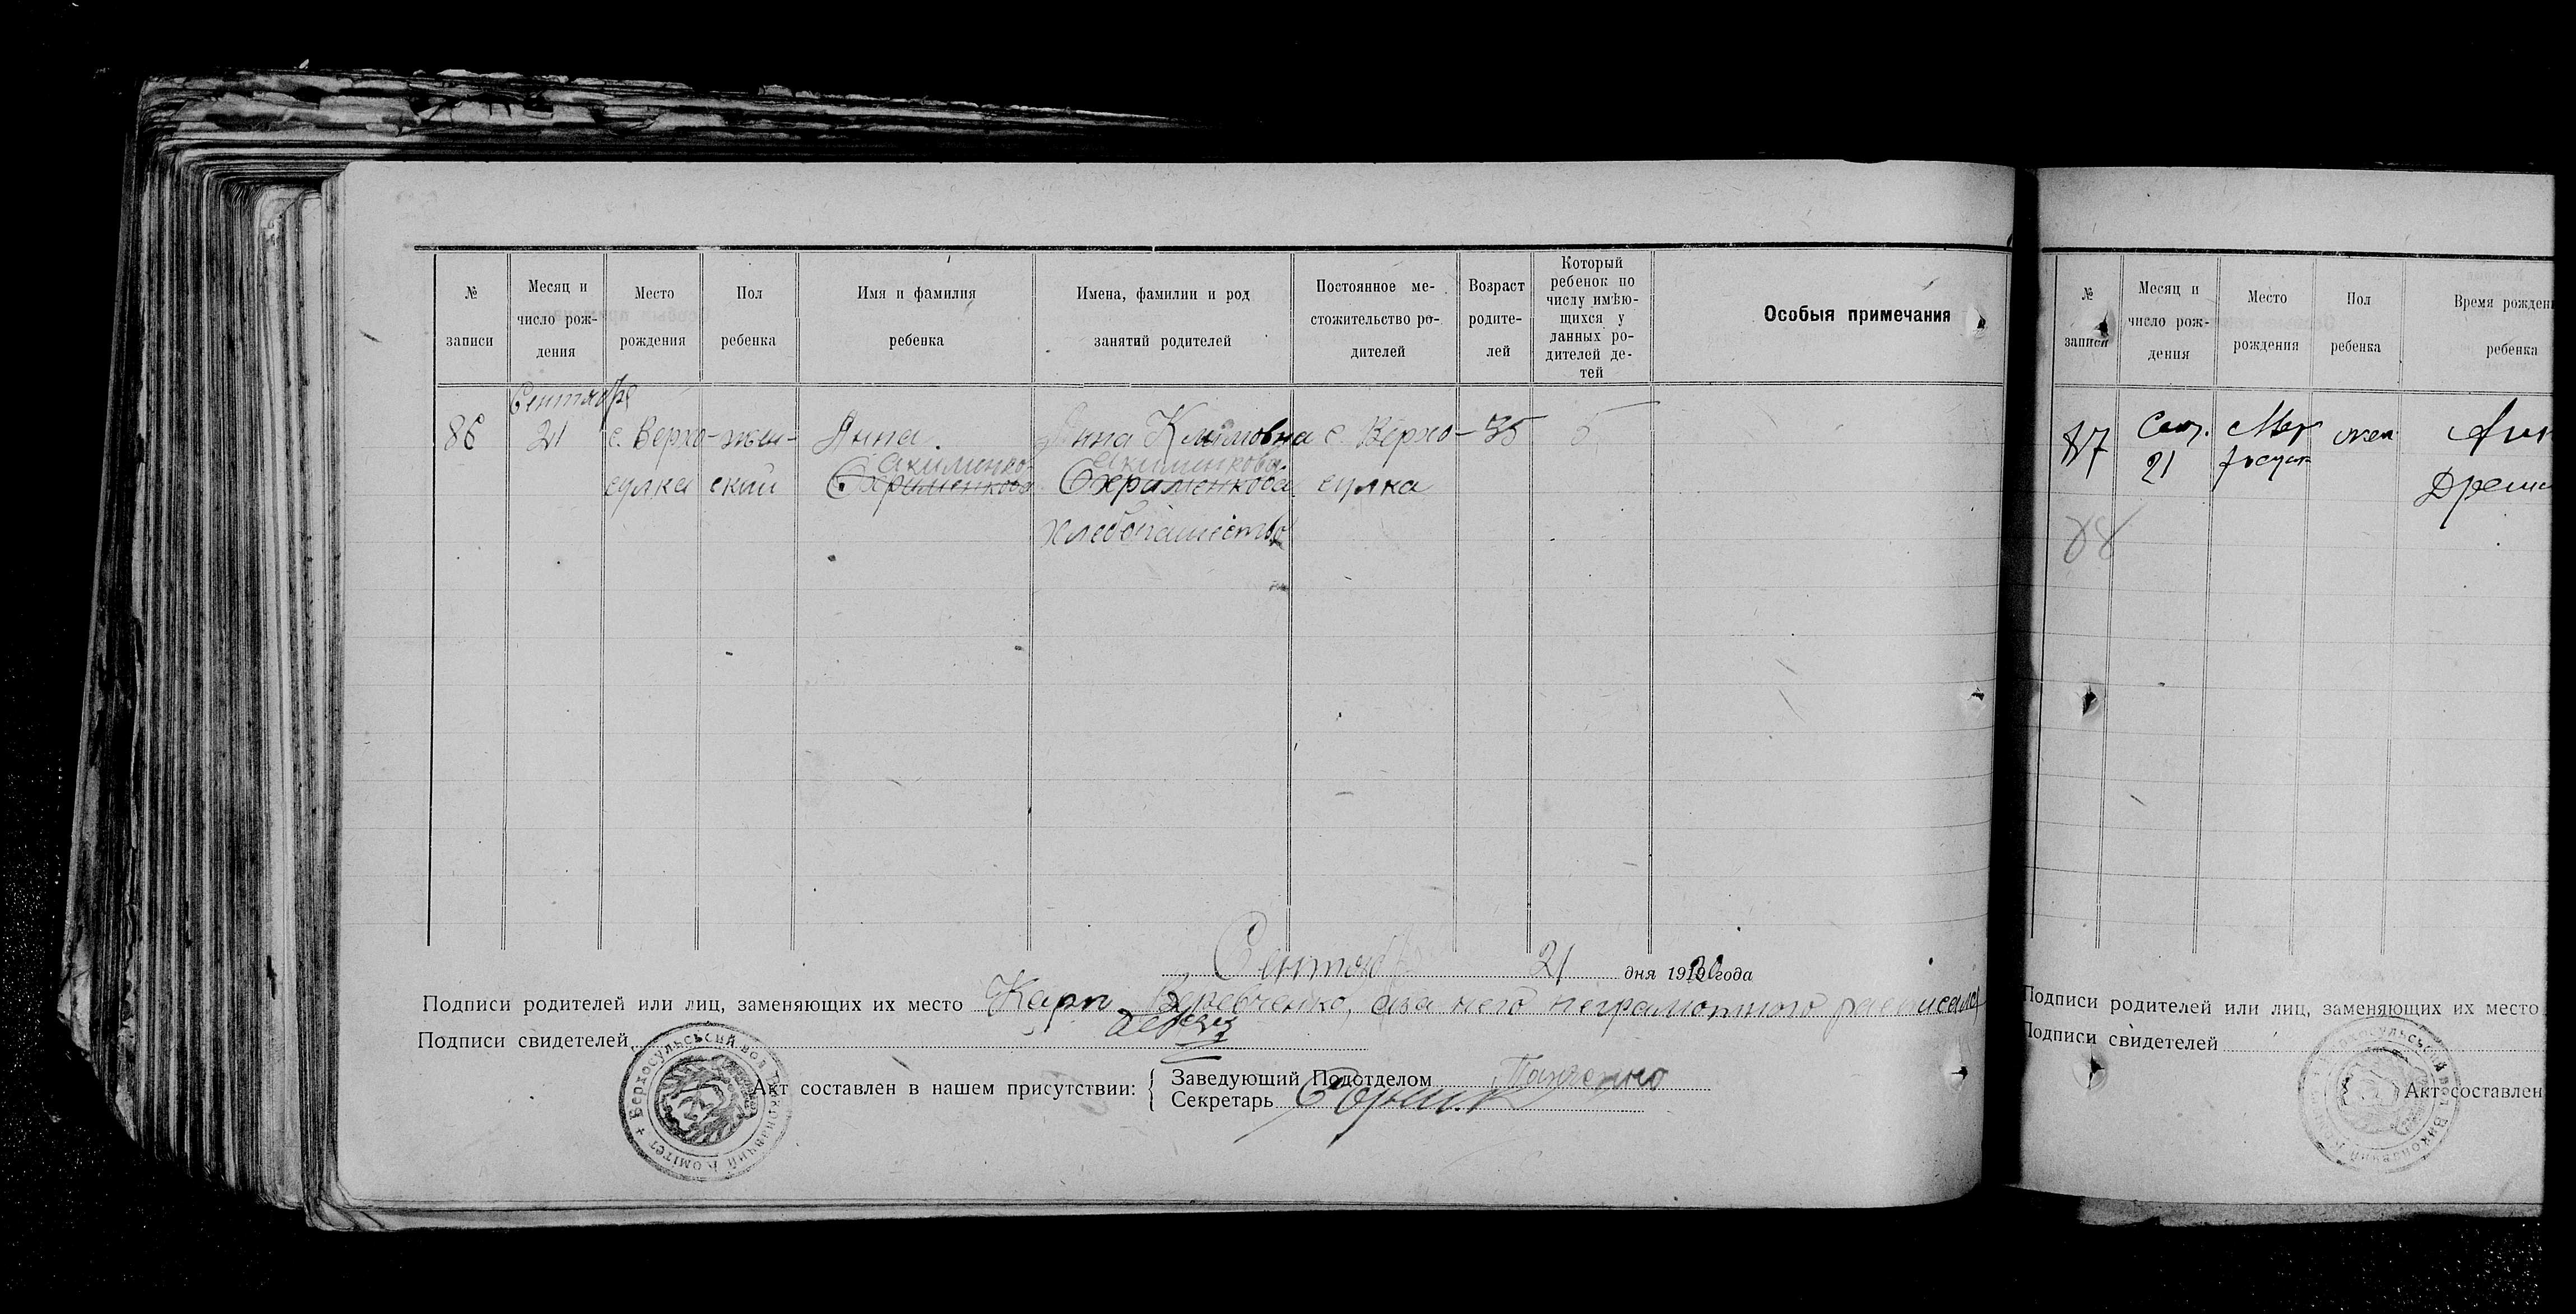 № записи
Месяц и число рож-дения
Место рождения
Пол ребенка
Имя и фамилия ребенка
Имена, фамилии и род занятий родителей
Постоянное ме-стожительство ро-дителей
Возраст родите-лей
Который ребенок по числу имѣю-щихся у данных ро-дителей де-тей
Особыя примечания
86
Сентября 21
с. Верхо-сулка
жен-ский
Анна
Акименко
Охрименкова
Анна Климовна
Акименкова
Охрименкова
хлебопашество
с. Верхо-сулка
35
5
Сентября 21 дня 1920 года
Подписи родителей или лиц, заменяющих их место Карп Веревченко, а за него неграмотного расписался
Подписи свидетелей
Акт составлен в нашем присутствии:
Заведующий Подотделом
Секретарь
Верхосульсьсий вол. Виконавчий Комітет
№ записи
Месяц и число рож-дения
Место рождения
Пол ребенка
Время рожден
ребенка
87
Сент. 21
жен
88
Подписи родителей или лиц, заменяющих их место
Подписи свидетелей
Акт составлен